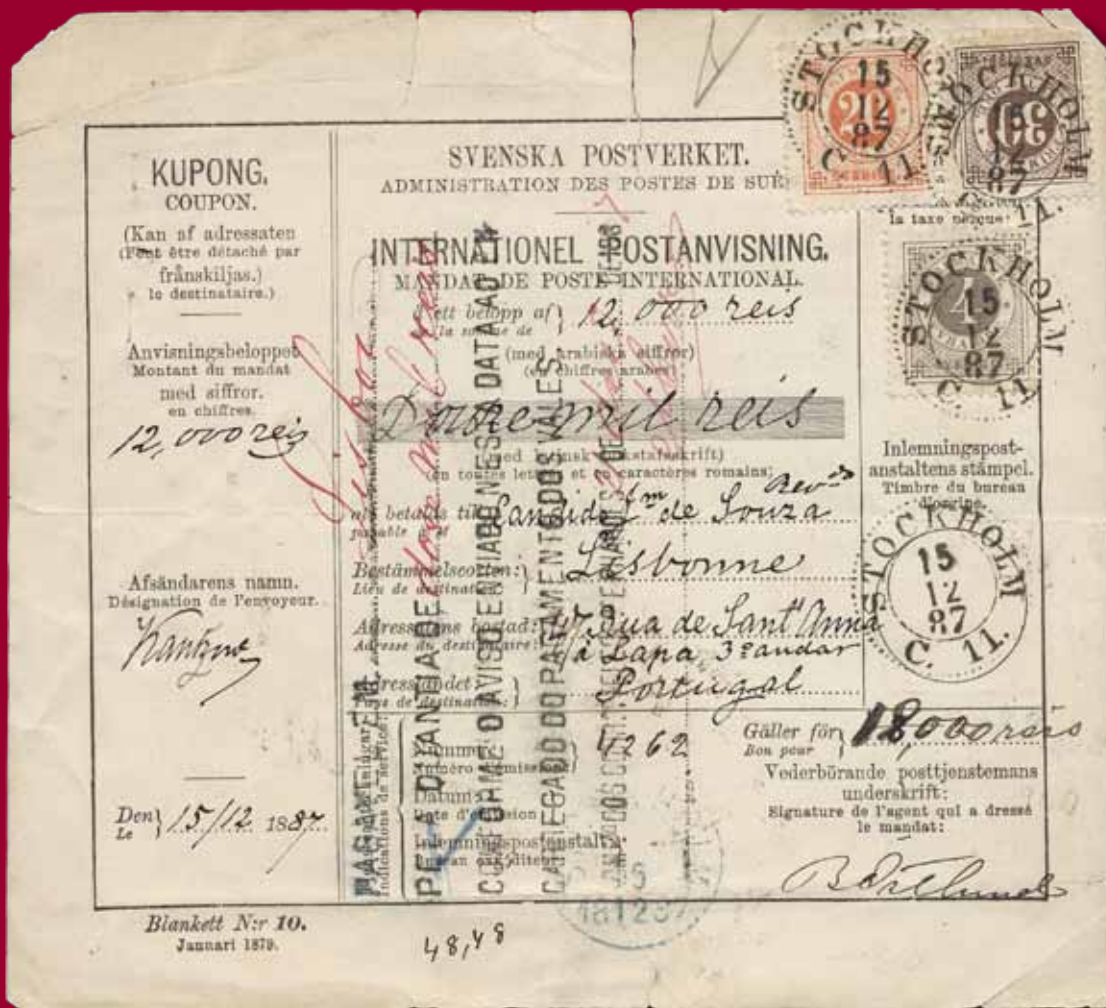 KUPONG.
COUPON.
(Kan af adressaten
(Peut être détaché par
frånskiljas.)
le destinataire.)
Anvisningsbeloppet
Montant du mandat
med siffror.
en chiffres.
12,000 reis
Afsändarens namn.
Désignation de l'envoyeur.
Den
Le
15/12 1887.
SVENSKA POSTVERKET.
ADMINISTRATION DES POSTES DE SUÈ
INTERNATIONEL POSTANVISNING.
MANDAT DE POSTE INTERNATIONAL.
å ett belopp af
de la somme de
12,000 reis
(med arabiska siffror)
(en chiffres arabes)
Doze mil reis
(en toutes lettres et en caractères romains)
att betalas till
payable à
Candido de Souza
Bestämmelseorten:
Lieu de destination:
Lisbonne
Adressatens bostad:
Adresse du destinataire:
47 Rua de Sant' Anna
à Lapa, 3º andar
Adresslandet:
Pays de destination:
Portugal
Indications de service:
Nummer:
Numéro d'émission:
4262
Datum:
Date d'émission
Inlemningspostanstalt:
Bureau expéditeur:
PAGAVEL EM
Lisboa
PELA QUANTIA DE
doze mil reis
CONFORME O AVISO ENVIADO N'ESTA DATA AO EN
CARREGADO DO PAGAMENTO DOS VALES
20
STOCKHOLM
15
12
87
C. 11.
30
STOCKHOLM
15
12
87
11.
la taxe perçue:
4
STOCKHOLM
15
12
87
C. 11.
Inlemningspost-
anstaltens stämpel.
Timbre du bureau
d'origine.
STOCKHOLM
15
12
87
C. 11.
Gäller för
Bon pour
12,000 reis
Vederbörande posttjenstemans
underskrift:
Signature de l'agent qui a dressé
le mandat:
Blankett N:r 10.
Januari 1879.
48,48